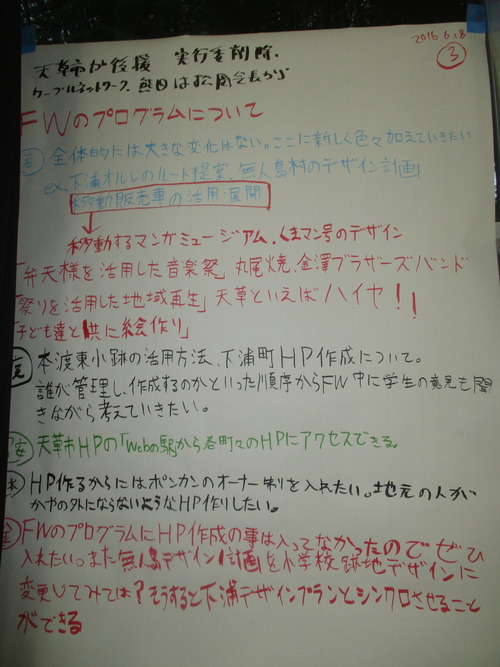 2016.6.18
③
天草市が後援 実行委削除、
ケーブルネットワーク、熊日は松岡会長から
FWのプログラムについて
全体的には大きな変化はない。ここに新しく色々加えていきたい
ex、下浦オルレのルート提案、無人島村のデザイン計画
移動販売車の活用・展開
移動するマンガミュージアム、くまマン号のデザイン
「弁天様を活用した音楽祭」丸尾焼、金澤ブラザーズバンド
「祭りを活用した地域再生」天草といえばハイヤ!!
「子ども達と共に絵作り」
本渡東小跡の活用方法、下浦町HP作成について。
誰が管理し、作成するのかといった順序からFW中に学生の意見も聞
きながら考えていきたい。
天草市HPの「Webの駅」から各町々のHPにアクセスできる。
HP作るからにはポンカンのオーナー制を入れたい。地元の人が
かやの外にならないようなHP作りしたい。
金 FWのプログラムにHP作成の事は入ってなかったのでぜひ
入れたい。また無人島デザイン計画を小学校跡地デザインに
変更してみては?そうすると下浦デザインプランとシンクロさせること
ができる